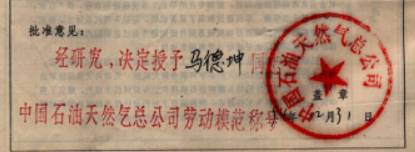 批准意见：
经研究，决定授予马德坤同
中国石油天然气总公司
盖章
中国石油天然气总公司劳动模范称号
年12月31日